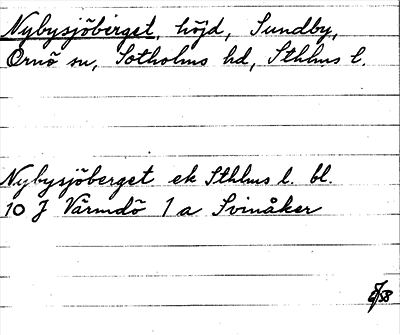 Nybysjöberget, höjd, Sundby,
Ornö sn, Sotholms hd, Sthlms l.
Nybysjöberget ek Sthlms l. bl.
10 J Värmdö 1a Svinåker